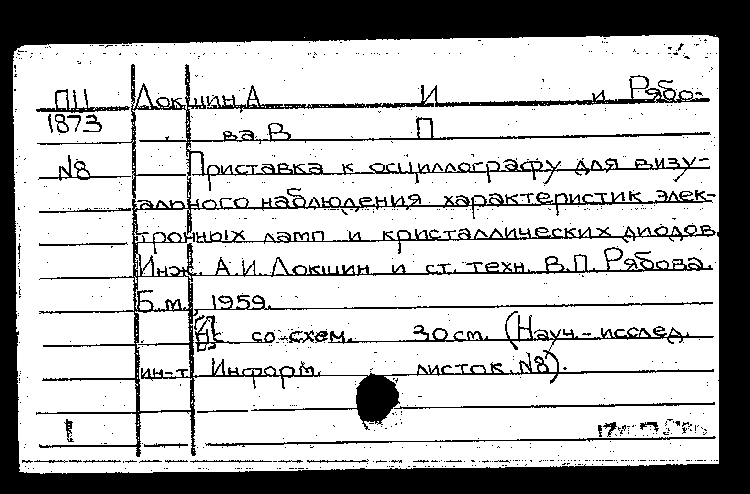 ПЦ Локшин, А И и Рябо-
1873 ва, В П
N8 Приставка к осциллографу для визу-
ального наблюдения характеристик элек-
тронных ламп и кристаллических диодов.
Инж. А.И. Локшин и ст. техн. В.П. Рябова.
Б.м., 1959.
со схем. 30 ст. (Науч.-исслед.
ин-т. Информ. листок N8).
1